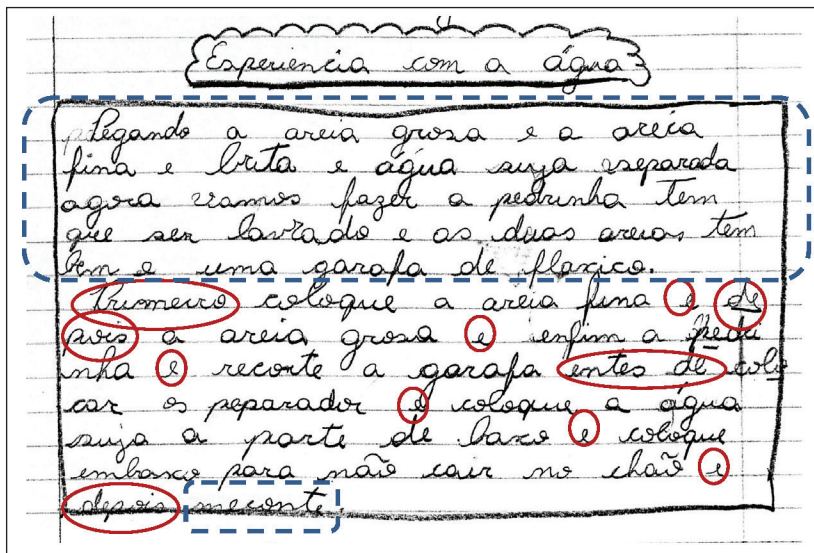 Experiencia com a água
Pegando a areia grosa e a areia
fina e brita e água suja separada
agora vamos fazer a pedrinha tem
que ser lavrado e as duas areias tem
bem e uma garafa de
Primeiro coloque a areia fina e de
pois a areia grosa e enfim a pedri
nha e reconte a garafa entes de colo
car os peparador e coloque a água
suja a parte de baxo e coloque
embaxo para não cair no chaõ e
depois meconte